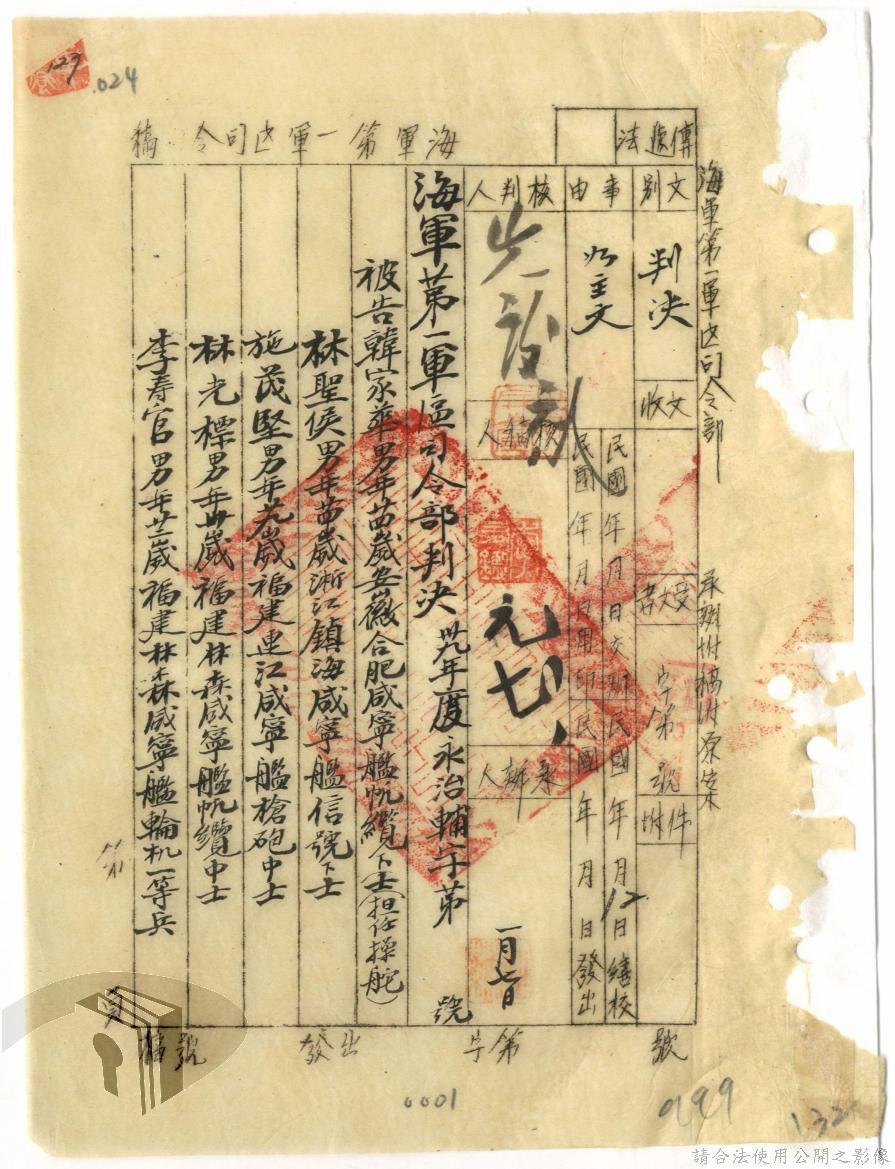 129
.024
海軍第一軍区司令部
承辦附稿附原案
傳遞法
海軍第一軍区司令 稿
文別
判决
收文
受文者
字第 號
附件
事由
如主文
民國 年 月 日交辦
民國 年 月 12日繕校
民國 年 月 日用印
民國 年 月 日發出
核判人
核稿人
元七、
承辦人
一月七日
海軍第一軍區司令部判决 卅九年度永治輔字第 號
被告韓家華男年卄四歲安徽合肥咸寧艦帆纜下士(担任操舵)
林聖侯男年卄四歲浙江鎮海咸寧艦信號下士
施茂堅男年卄九歲福建連江咸寧艦槍砲中士
林光標男年卅歲福建林森咸寧艦帆纜中士
李寿官男年卄三歲福建林森咸寧艦輪机一等兵
發出 字第 號
檔號
0001
999
132
請合法使用公開之影像